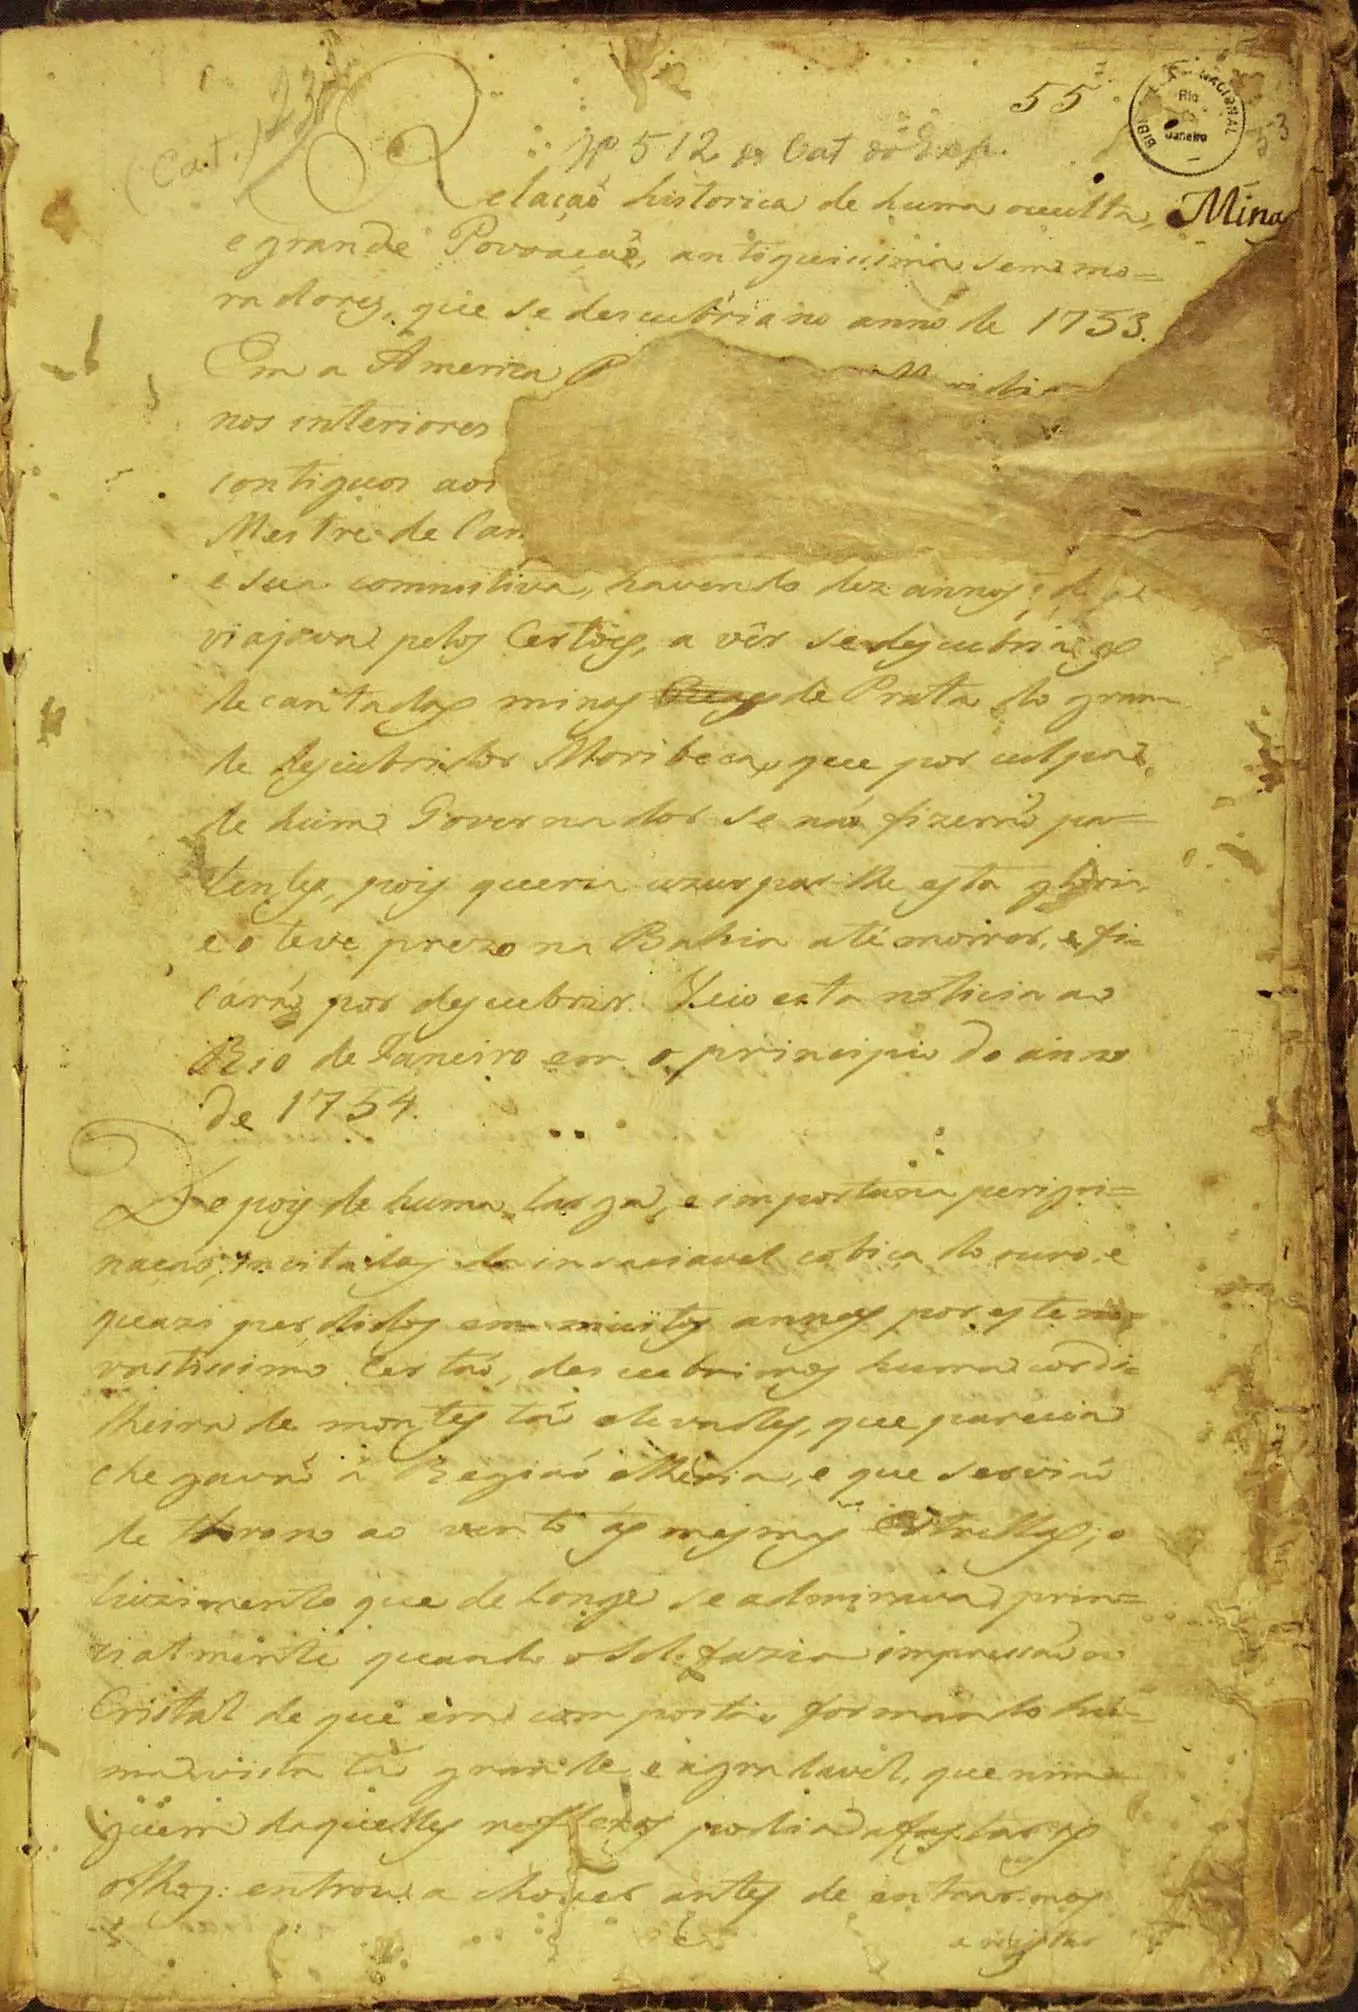 (Cat.) 23
55
BIBLIOTHECA NACIONAL
Rio
de
Janeiro
53
Nº 512 do Cat do Exp.
Relaçaõ historica de huma occulta, Minas
e grande Povoaçaõ, antiguissima sem mo=
radores, que se descubriu no anno de 1753.
Em a America
nos interiores
contiguos aos
Mestre de Can
e sua commitiva, havendo dez annos, q
viajava pelos Certões, a vêr se descubria os
decantadas minas de Prata do gran
de descubridor Moribeca, que por culpa
de hum Governador se naõ fizeraõ pa=
tentes, pois queria uzurparlhe esta gloria
e o teve prezo na Bahia até morrer, e fi=
caraõ por descubrir. Veio esta noticia ao
Rio de Janeiro em o principio do anno
de 1754.
Depois de huma larga, e importuna perigri=
naçaõ, incitados da insaciavel cobiça do ouro, e
quazi perdidos em muitos annos por este
vastissimo Certaõ, descubrimos huma cordi=
lheira de montes taõ elevados, que parecia
chegavaõ á Regiaõ etheria, e que serviaõ
de throno ao vento ás mesmas Estrellas; o
luzimento que de longe se admirava, prin=
cialmente quando o Sol fazia impressaõ ao
Cristal de que era composta formando hu=
ma vista taõ grande e agradavel, que nin=
guem daquelles reflexos podia afastar os
olhos: entrou a chover antes de entrarmos
a registar